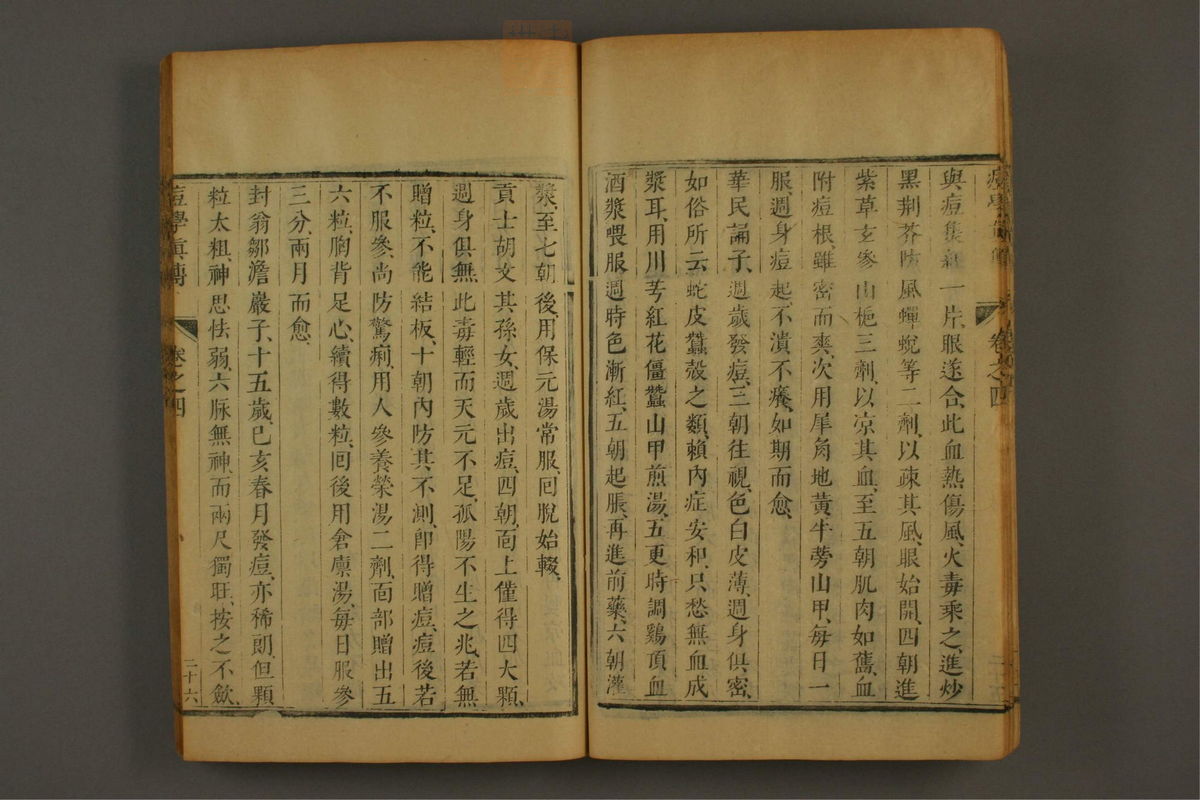 與痘集紅一片、眼遂合、此血熱傷風、火毒乘之、進炒
黑荆芥防風蟬蛻等二劑、以疎其風、眼始開、四朝進
紫草玄參山梔三劑、以凉其血、至五朝肌肉如舊、血
附痘根雖密而爽、次用犀角地黃牛蒡山甲、每日一
服、週身痘起、不潰不癢、如期而愈、
華民誦子、週歲發痘、三朝往視、色白皮薄、週身俱密、
如俗所云蛇皮蠶殼之類、賴內症安和、只愁無血成
漿耳、用川芎紅花僵蠶山甲煎湯、五更時調鷄頂血
酒漿喂服、週時色漸紅、五朝起脹、再進前藥、六朝灌
漿、至七朝後、用保元湯常服、囘脫始輟、
貢士胡文其孫女、週歲出痘、四朝、面上僅得四大顆、
週身俱無、此毒輕而天元不足、孤陽不生之兆、若無
贈粒、不能結板、十朝內防其不測、卽得贈痘、痘後若
不服參、尚防驚痢、用人參養榮湯二劑、面部贈出五
六粒、胸背足心、續得數粒、囘後用倉廩湯、每日服參
三分、兩月而愈、
封翁鄒澹巖子、十五歲、已亥春月發痘、亦稀朗、但顆
粒太粗、神思怯弱、六脉無神、而兩尺獨旺、按之不歛、
痘學眞傳
卷之四
二十六